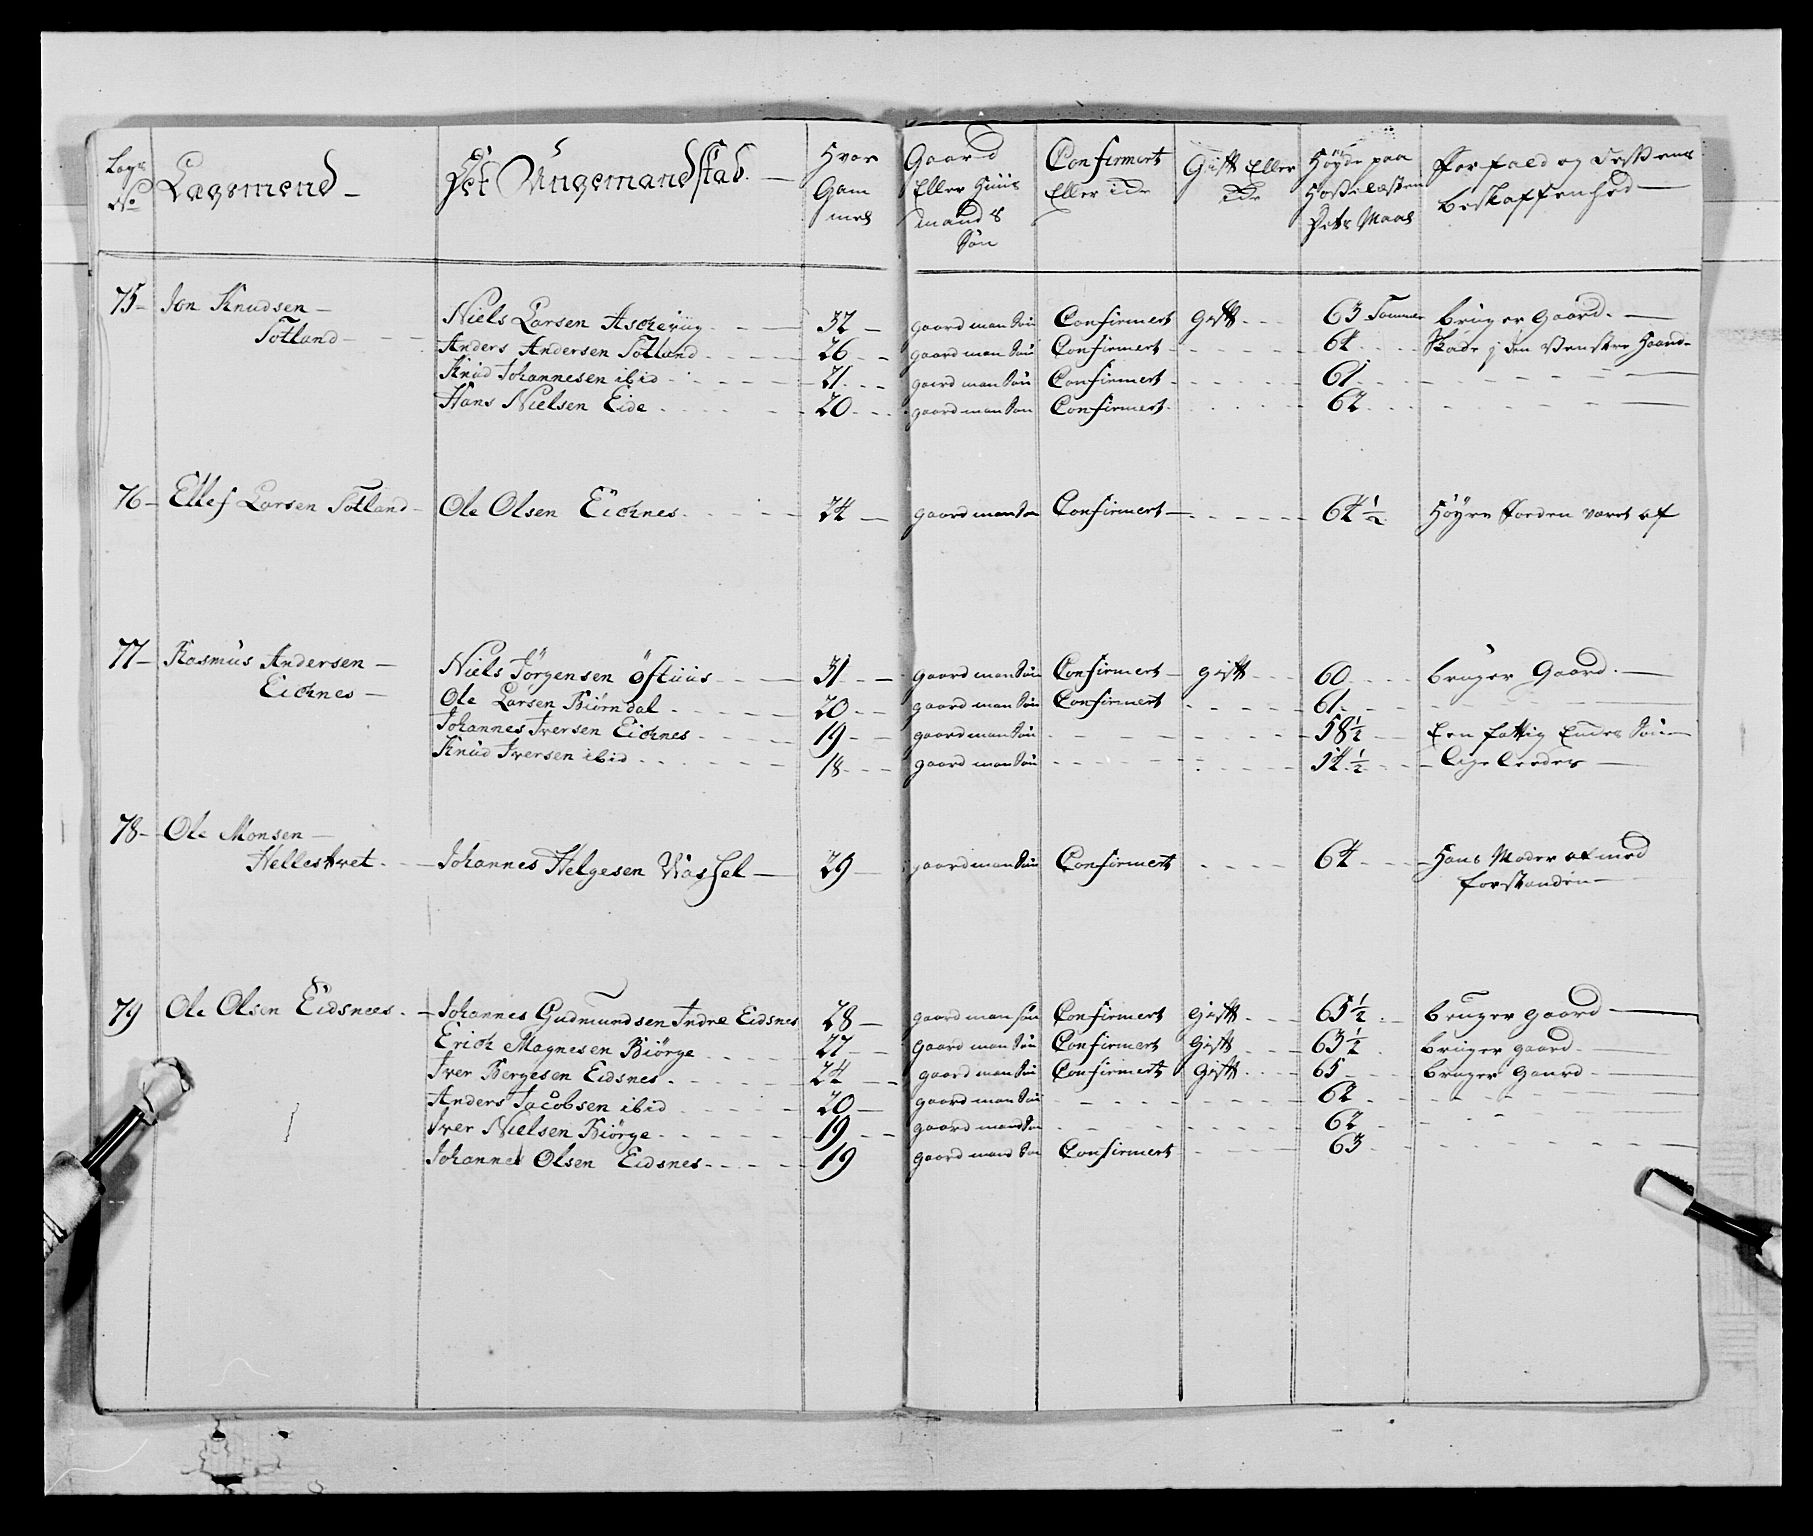 Legs No Lægsmend Det Ungemandskab Hvor Gammel Gaard Eller Huus mands Søn Confirmert Eller icke Gift Eller icke Høyde paa Hosselæsten Dets Maal Forfald og dessens beskaffenhed
75 Jon Knudsen
Totland
Niels Larsen 32 gaardman Søn Confirmert gift 63 Tommer bruger gaard
Anders Andersen Totland 26 gaardman Søn Confirmert 64 Skade j den Venstre Haand
Knud Johannesen ibid 21 gaardman Søn Confirmert 61
Hans Nielsen Eide 20 gaardman Søn Confirmert 62
76 Ellef Larsen Totland Ole Olsen Eichnes 24 gaardman Søn Confirmert 64 1/2 Høyre af
77 Rasmus Andersen
Eichnes
Niels Jørgensen Øftuus 31 gaardman Søn Confirmert gift 60 bruger Gaard
Ole Larsen Biørndal 20 gaardman Søn Confirmert 61
Johannes Iversen Eichnes 19 gaardman Søn 58 1/2 Een fattig Enckes Søn
Knud Iversen ibid 18 gaardman Søn 54 1/2 lige leedes
78 Ole Monsen
Hellestvet
Johannes Helgesen Vassel 29 gaardman Søn Confirmert 64 Hans Moder af med
forstanden
79 Ole Olsen Eidsnees Johannes Gudmundsen Indre Eidsnes 28 gaardman søn Confirmert gift 65 1/2 bruger gaard
Erich Magnesen Biørge 27 gaardman Søn Confirmert Gift 63 1/2 bruger gaard
Iver Bergesen Eidsnes 24 gaardman Søn Confirmert Gift 65 bruger gaard
Anders Jacobsen ibid 20 gaardman Søn 62
Iver Nielsen Biørge 19 gaardmand Søn 62
Johannes Olsen Eidsnes 19 gaardmand Søn Confirmert 63